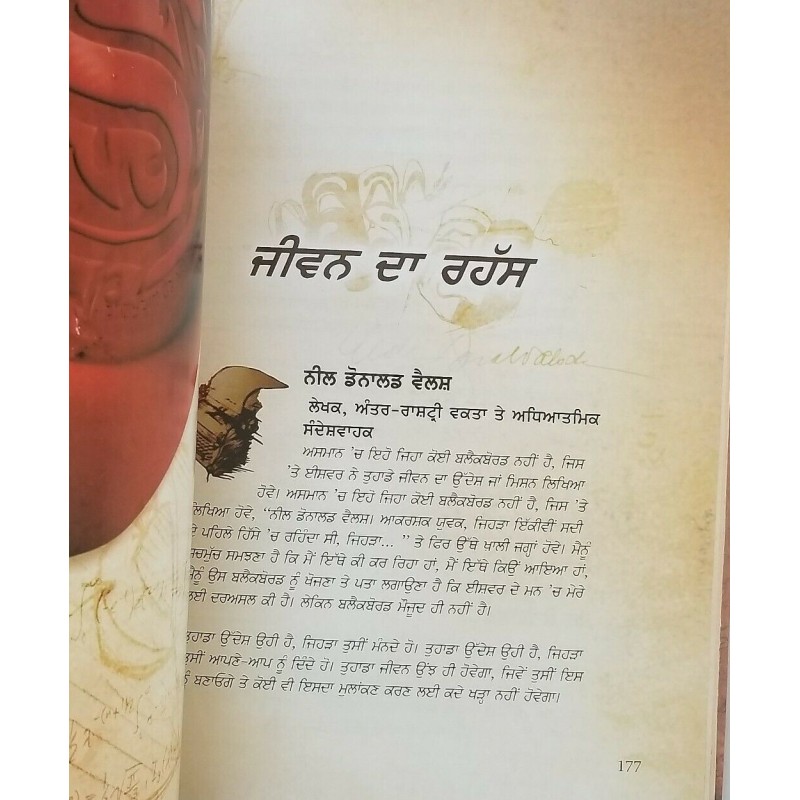 ਜੀਵਨ ਦਾ ਰਹੱਸ
ਨੀਲ ਡੋਨਾਲਡ ਵੈਲਸ਼
ਲੇਖਕ, ਅੰਤਰ-ਰਾਸ਼ਟ੍ਰੀ ਵਕਤਾ ਤੇ ਅਧਿਆਤਮਿਕ
ਸੰਦੇਸ਼ਵਾਹਕ
ਅਸਮਾਨ 'ਚ ਇਹੋ ਜਿਹਾ ਕੋਈ ਬਲੈਕਬੋਰਡ ਨਹੀਂ ਹੈ, ਜਿਸ
'ਤੇ ਈਸਵਰ ਨੇ ਤੁਹਾਡੇ ਜੀਵਨ ਦਾ ਉੱਦੇਸ਼ ਜਾਂ ਮਿਸ਼ਨ ਲਿਖਿਆ
ਹੋਵੇ। ਅਸਮਾਨ 'ਚ ਇਹੋ ਜਿਹਾ ਕੋਈ ਬਲੈਕਬੋਰਡ ਨਹੀਂ ਹੈ, ਜਿਸ 'ਤੇ
ਲਿਖਿਆ ਹੋਵੇ, "ਨੀਲ ਡੋਨਾਲਡ ਵੈਲਸ਼। ਆਕਰਸ਼ਕ ਯੁਵਕ, ਜਿਹੜਾ ਇੱਕੀਵੀਂ ਸਦੀ
ਦੇ ਪਹਿਲੇ ਹਿੱਸੇ 'ਚ ਰਹਿੰਦਾ ਸੀ, ਜਿਹੜਾ... " ਤੇ ਫਿਰ ਉੱਥੇ ਖਾਲੀ ਜਗ੍ਹਾਂ ਹੋਵੇ। ਮੈਨੂੰ
ਸਚਮੁੱਚ ਸਮਝਣਾ ਹੈ ਕਿ ਮੈਂ ਇੱਥੇ ਕੀ ਕਰ ਰਿਹਾ ਹਾਂ, ਮੈਂ ਇੱਥੇ ਕਿਉਂ ਆਇਆ ਹਾਂ,
ਮੈਨੂੰ ਉਸ ਬਲੈਕਬੋਰਡ ਨੂੰ ਖੋਜਣਾ ਤੇ ਪਤਾ ਲਗਾਉਣਾ ਹੈ ਕਿ ਈਸਵਰ ਦੇ ਮਨ 'ਚ ਮੇਰੇ
ਲਈ ਦਰਅਸਲ ਕੀ ਹੈ। ਲੇਕਿਨ ਬਲੈਕਬੋਰਡ ਮੌਜੂਦ ਹੀ ਨਹੀਂ ਹੈ।
ਤੁਹਾਡਾ ਉੱਦੇਸ਼ ਉਹੀ ਹੈ, ਜਿਹੜਾ ਤੁਸੀਂ ਮੰਨਦੇ ਹੋ। ਤੁਹਾਡਾ ਉੱਦੇਸ਼ ਉਹੀ ਹੈ, ਜਿਹੜਾ
ਤੁਸੀਂ ਆਪਣੇ-ਆਪ ਨੂੰ ਦਿੰਦੇ ਹੋ। ਤੁਹਾਡਾ ਜੀਵਨ ਉੱਝ ਹੀ ਹੋਵੇਗਾ, ਜਿਵੇਂ ਤੁਸੀਂ ਇਸ
ਨੂੰ ਬਣਾਓਗੇ ਤੇ ਕੋਈ ਵੀ ਇਸਦਾ ਮੁਲਾਂਕਣ ਕਰਣ ਲਈ ਕਦੇ ਖੜ੍ਹਾ ਨਹੀਂ ਹੋਵੇਗਾ।
177